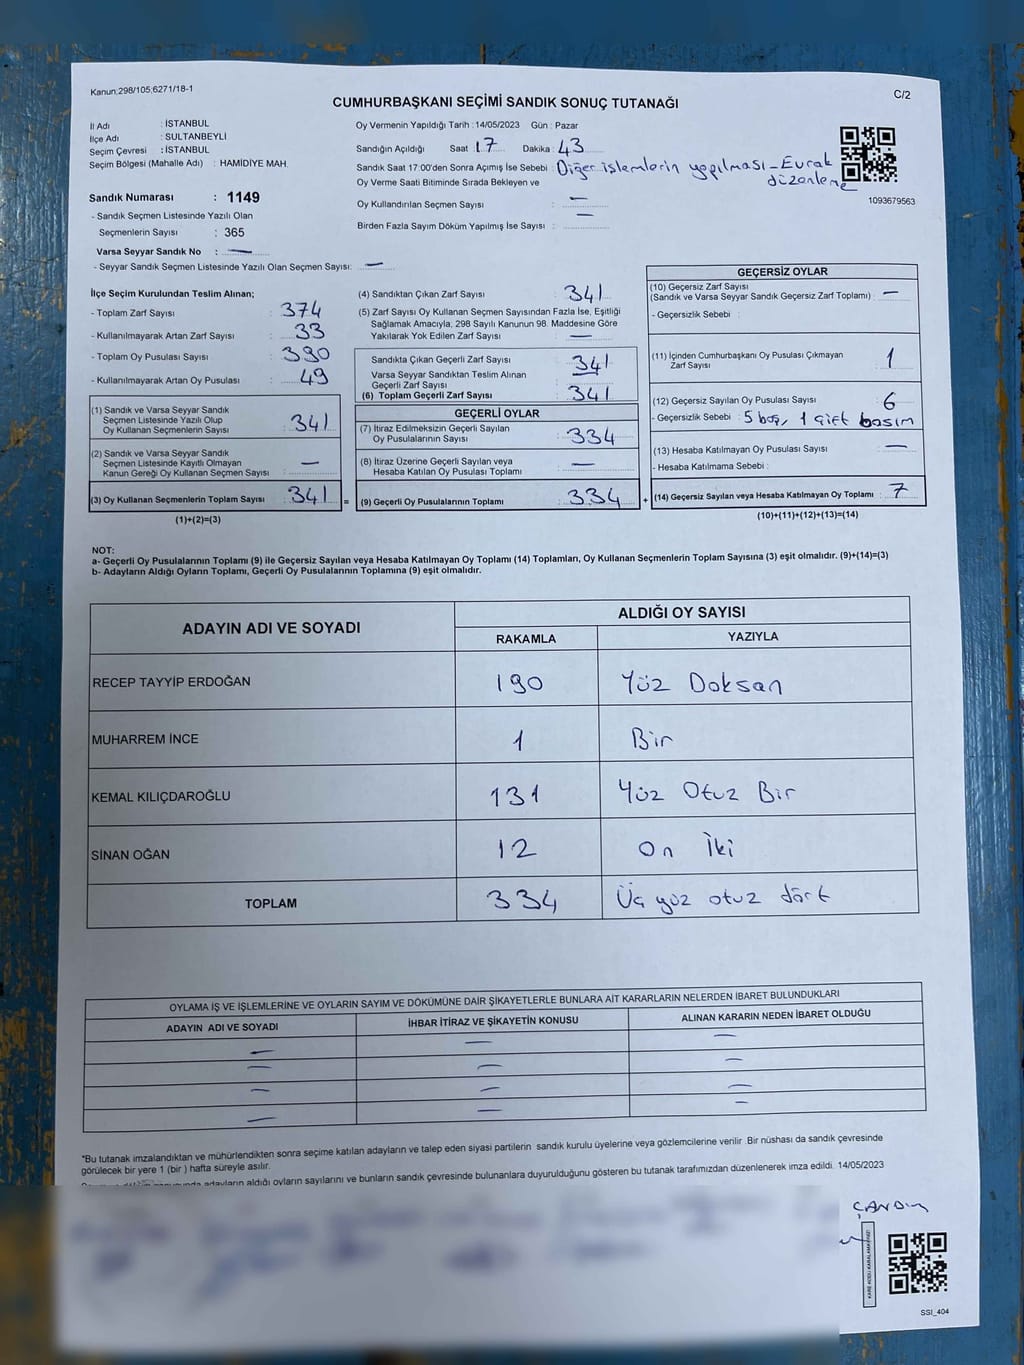 Kanun:298/105;6271/18-1
C/2
CUMHURBAŞKANI SEÇİMİ SANDIK SONUÇ TUTANAĞI
İl Adı : İSTANBUL
İlçe Adı : SULTANBEYLİ
Seçim Çevresi : İSTANBUL
Seçim Bölgesi (Mahalle Adı) : HAMİDİYE MAH.
Sandık Numarası : 1149
- Sandık Seçmen Listesinde Yazılı Olan
Seçmenlerin Sayısı : 365
Varsa Seyyar Sandık No : —
- Seyyar Sandık Seçmen Listesinde Yazılı Olan Seçmen Sayısı: —
Oy Vermenin Yapıldığı Tarih : 14/05/2023 Gün : Pazar
Sandığın Açıldığı Saat : 17 Dakika : 43
Sandık Saat 17:00'den Sonra Açımış İse Sebebi : Diğer işlemlerin yapılması - Evrak
düzenleme
Oy Verme Saati Bitiminde Sırada Bekleyen ve
Oy Kullandırılan Seçmen Sayısı : —
Birden Fazla Sayım Döküm Yapılmış İse Sayısı : —
1093679563
İlçe Seçim Kurulundan Teslim Alınan;
- Toplam Zarf Sayısı : 374
- Kullanılmayarak Artan Zarf Sayısı : 33
- Toplam Oy Pusulası Sayısı : 390
- Kullanılmayarak Artan Oy Pusulası : 49
(1) Sandık ve Varsa Seyyar Sandık
Seçmen Listesinde Yazılı Olup
Oy Kullanan Seçmenlerin Sayısı : 341
(2) Sandık ve Varsa Seyyar Sandık
Seçmen Listesinde Kayıtlı Olmayan
Kanun Gereği Oy Kullanan Seçmen Sayısı : —
(3) Oy Kullanan Seçmenlerin Toplam Sayısı : 341 =
(1)+(2)=(3)
(4) Sandıktan Çıkan Zarf Sayısı : 341
(5) Zarf Sayısı Oy Kullanan Seçmen Sayısından Fazla İse, Eşitliği
Sağlamak Amacıyla, 298 Sayılı Kanunun 98. Maddesine Göre
Yakılarak Yok Edilen Zarf Sayısı : —
Sandıkta Çıkan Geçerli Zarf Sayısı : 341
Varsa Seyyar Sandıktan Teslim Alınan
Geçerli Zarf Sayısı : —
(6) Toplam Geçerli Zarf Sayısı : 341
GEÇERLİ OYLAR
(7) İtiraz Edilmeksizin Geçerli Sayılan
Oy Pusulalarının Sayısı : 334
(8) İtiraz Üzerine Geçerli Sayılan veya
Hesaba Katılan Oy Pusulası Toplamı : —
(9) Geçerli Oy Pusulalarının Toplamı : 334 +
GEÇERSİZ OYLAR
(10) Geçersiz Zarf Sayısı
(Sandık ve Varsa Seyyar Sandık Geçersiz Zarf Toplamı) : —
- Geçersizlik Sebebi :
(11) İçinden Cumhurbaşkanı Oy Pusulası Çıkmayan
Zarf Sayısı : 1
(12) Geçersiz Sayılan Oy Pusulası Sayısı : 6
- Geçersizlik Sebebi : 5 boş, 1 çift basım
(13) Hesaba Katılmayan Oy Pusulası Sayısı : —
- Hesaba Katılmama Sebebi :
(14) Geçersiz Sayılan veya Hesaba Katılmayan Oy Toplamı : 7
(10)+(11)+(12)+(13)=(14)
NOT:
a- Geçerli Oy Pusulalarının Toplamı (9) ile Geçersiz Sayılan veya Hesaba Katılmayan Oy Toplamı (14) Toplamları, Oy Kullanan Seçmenlerin Toplam Sayısına (3) eşit olmalıdır. (9)+(14)=(3)
b- Adayların Aldığı Oyların Toplamı, Geçerli Oy Pusulalarının Toplamına (9) eşit olmalıdır.
ADAYIN ADI VE SOYADI ALDIĞI OY SAYISI
RAKAMLA YAZIYLA
RECEP TAYYİP ERDOĞAN 190 Yüz Doksan
MUHARREM İNCE 1 Bir
KEMAL KILIÇDAROĞLU 131 Yüz Otuz Bir
SİNAN OĞAN 12 On İki
TOPLAM 334 Üç yüz otuz dört
OYLAMA İŞ VE İŞLEMLERİNE VE OYLARIN SAYIM VE DÖKÜMÜNE DAİR ŞİKAYETLERLE BUNLARA AİT KARARLARIN NELERDEN İBARET BULUNDUKLARI
ADAYIN ADI VE SOYADI İHBAR İTİRAZ VE ŞİKAYETİN KONUSU ALINAN KARARIN NEDEN İBARET OLDUĞU
— — —
— — —
— — —
— — —
*Bu tutanak imzalandıktan ve mühürlendikten sonra seçime katılan adayların ve talep eden siyasi partilerin sandık kurulu üyelerine veya gözlemcilerine verilir. Bir nüshası da sandık çevresinde
görülecek bir yere 1 (bir ) hafta süreyle asılır.
adayların aldığı oyların sayılarını ve bunların sandık çevresinde bulunanlara duyurulduğunu gösteren bu tutanak tarafımızdan düzenlenerek imza edildi. 14/05/2023
ÇANDIR
KARE KODU KARALAMAYINIZ!
SSI_404